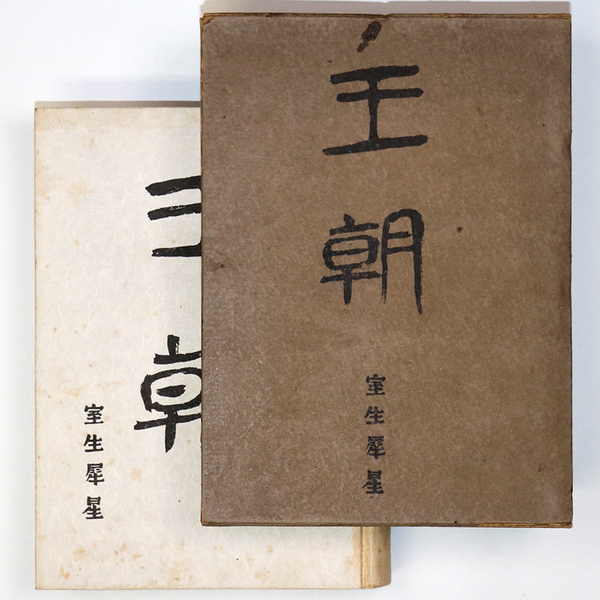 王朝
室生犀星
室生犀星